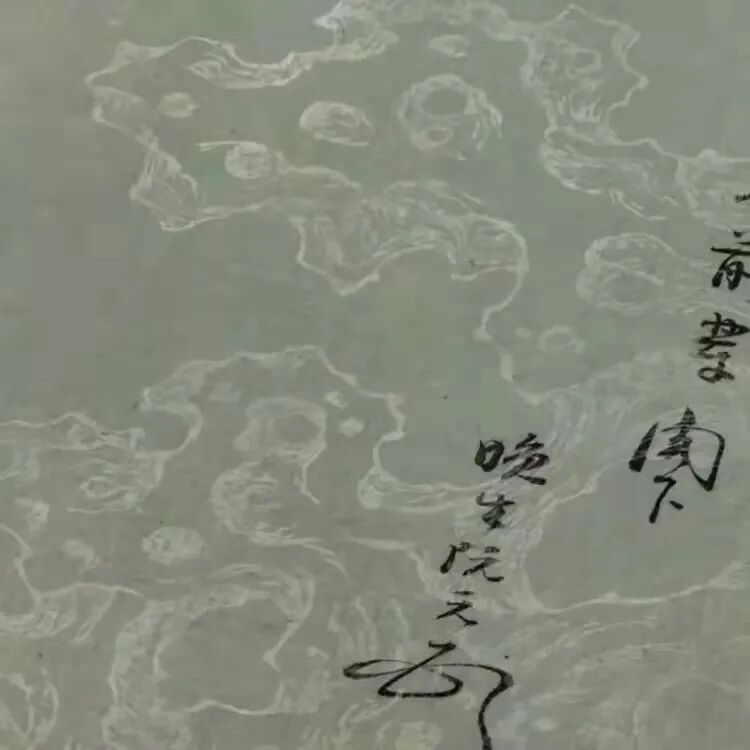 前輩閣下
晚生阮元